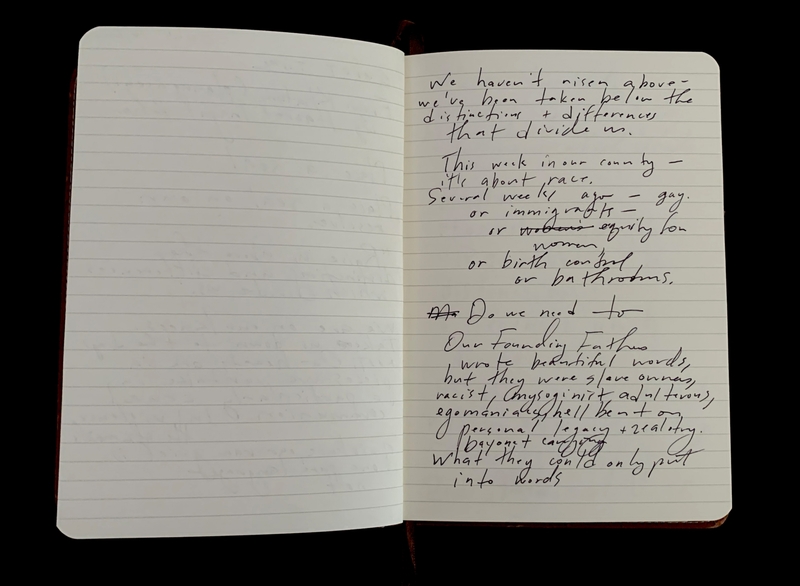 We haven't risen above –
we've been taken below the
distinctions + differences
that divide us.
This week in our county –
it's about race.
Several weeks ago – gay.
or immigrants –
or women's equity for
women,
or birth control
or bathrooms.
Do we need to
Our Founding Fathers
wrote beautiful words,
but they were slave owners,
racist, mysoginist adulterous,
egomaniacs, hell bent on
personal legacy + zealotry.
bayonet carrying
What they could only put
into words